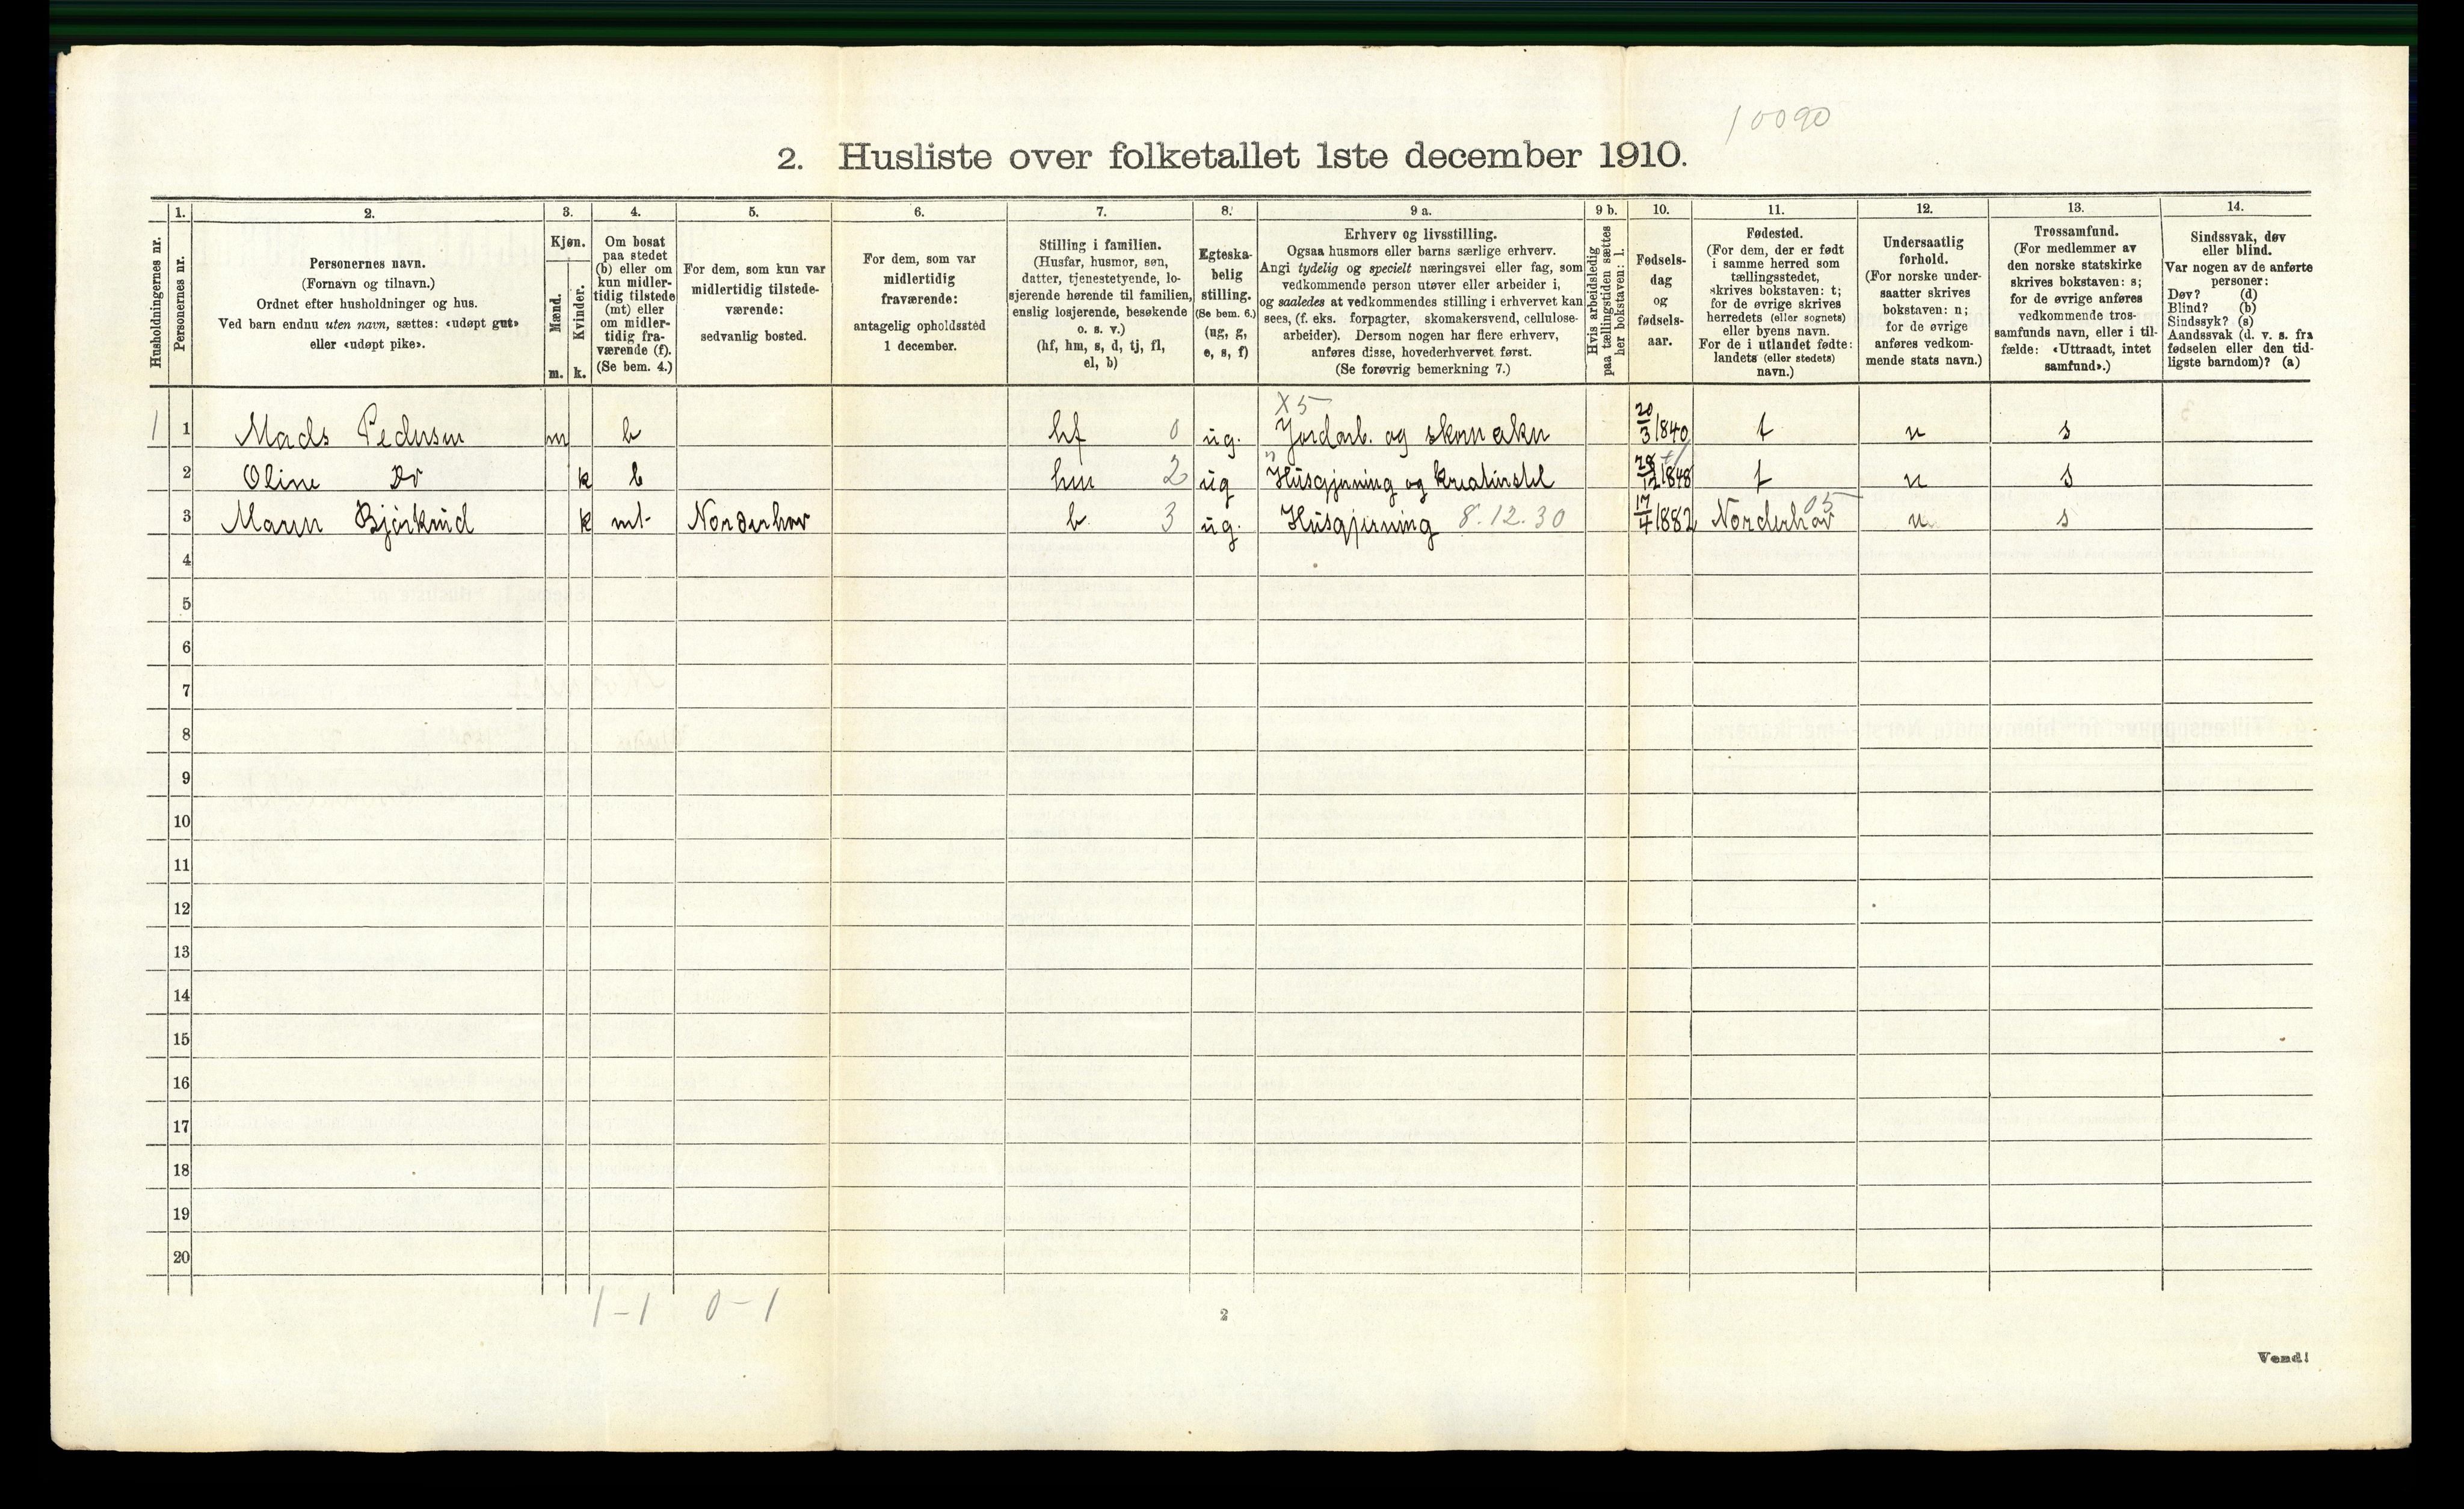 10090
2. Husliste over folketallet 1ste december 1910.
Husholdningernes nr.
1.
Personernes nr.
2.
Personernes navn.
(Fornavn og tilnavn.)
Ordnet efter husholdninger og hus.
Ved barn endnu uten navn, sættes: «udøpt gut»
eller «udøpt pike».
3.
Kjøn.
Mænd.
Kvinder.
m. k.
4.
Om bosat
paa stedet
(b) eller om
kun midler-
tidig tilstede
(mt) eller
om midler-
tidig fra-
værende (f).
(Se bem. 4.)
5.
For dem, som kun var
midlertidig tilstede-
værende:
sedvanlig bosted.
6.
For dem, som var
midlertidig
fraværende:
antagelig opholdssted
1 december.
7.
Stilling i familien.
(Husfar, husmor, søn,
datter, tjenestetyende, lo-
sjerende hørende til familien,
enslig losjerende, besøkende
o. s. v.)
(hf, hm, s, d, tj, fl,
el, b)
8.
Egteska-
belig
stilling.
(Se bem. 6.)
(ug, g,
e, s, f)
9 a.
Erhverv og livsstilling.
Ogsaa husmors eller barns særlige erhverv.
Angi tydelig og specielt næringsvei eller fag, som
vedkommende person utøver eller arbeider i,
og saaledes at vedkommendes stilling i erhvervet kan
sees, (f. eks. forpagter, skomakersvend, cellulose-
arbeider). Dersom nogen har flere erhverv,
anføres disse, hovederhvervet først.
(Se forøvrig bemerkning 7.)
9 b.
Hvis arbeidsledig
paa tællingstiden sættes
her bokstaven: l.
10.
Fødsels-
dag
og
fødsels-
aar.
11.
Fødested.
(For dem, der er født
i samme herred som
tællingsstedet,
skrives bokstaven: t;
for de øvrige skrives
herredets (eller sognets)
eller byens navn.
For de i utlandet fødte:
landets (eller stedets)
navn.)
12.
Undersaatlig
forhold.
(For norske under-
saatter skrives
bokstaven: n;
for de øvrige
anføres vedkom-
mende stats navn.)
13.
Trossamfund.
(For medlemmer av
den norske statskirke
skrives bokstaven: s;
for de øvrige anføres
vedkommende tros-
samfunds navn, eller i til-
fælde: «Uttraadt, intet
samfund».)
14.
Sindssvak, døv
eller blind.
Var nogen av de anførte
personer:
Døv? (d)
Blind? (b)
Sindssyk? (s)
Aandssvak (d. v. s. fra
fødselen eller den tid-
ligste barndom)? (a)
X5
1 1 Mads Pedersen m b hf 0 ug. Jordarb. og skomaker 20/3 1840 t n s
2 Oline Do k b hm 2 ug Husgjerning og kreaturstel 28/12 1848 t n s
3 Maren Bjørkerud k mt Norderhov b 3 ug. Husgjerning 8.12.30 17/4 1882 Norderhov 05 n s
4
5
6
7
8
9
10
11
12
13
14
15
16
17
18
19
20
1-1 0-1
2
Vend!